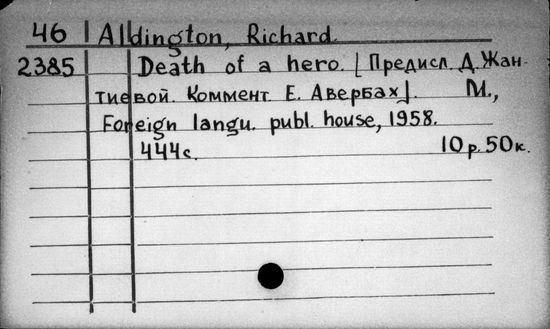 46 Aldington, Richard
2385 Death of a hero. [Предисл. Д. Жан-
тиевой. Коммент. Е. Авербах]. М.,
Foreign langu. publ. house, 1958.
444с. 10р.50к.